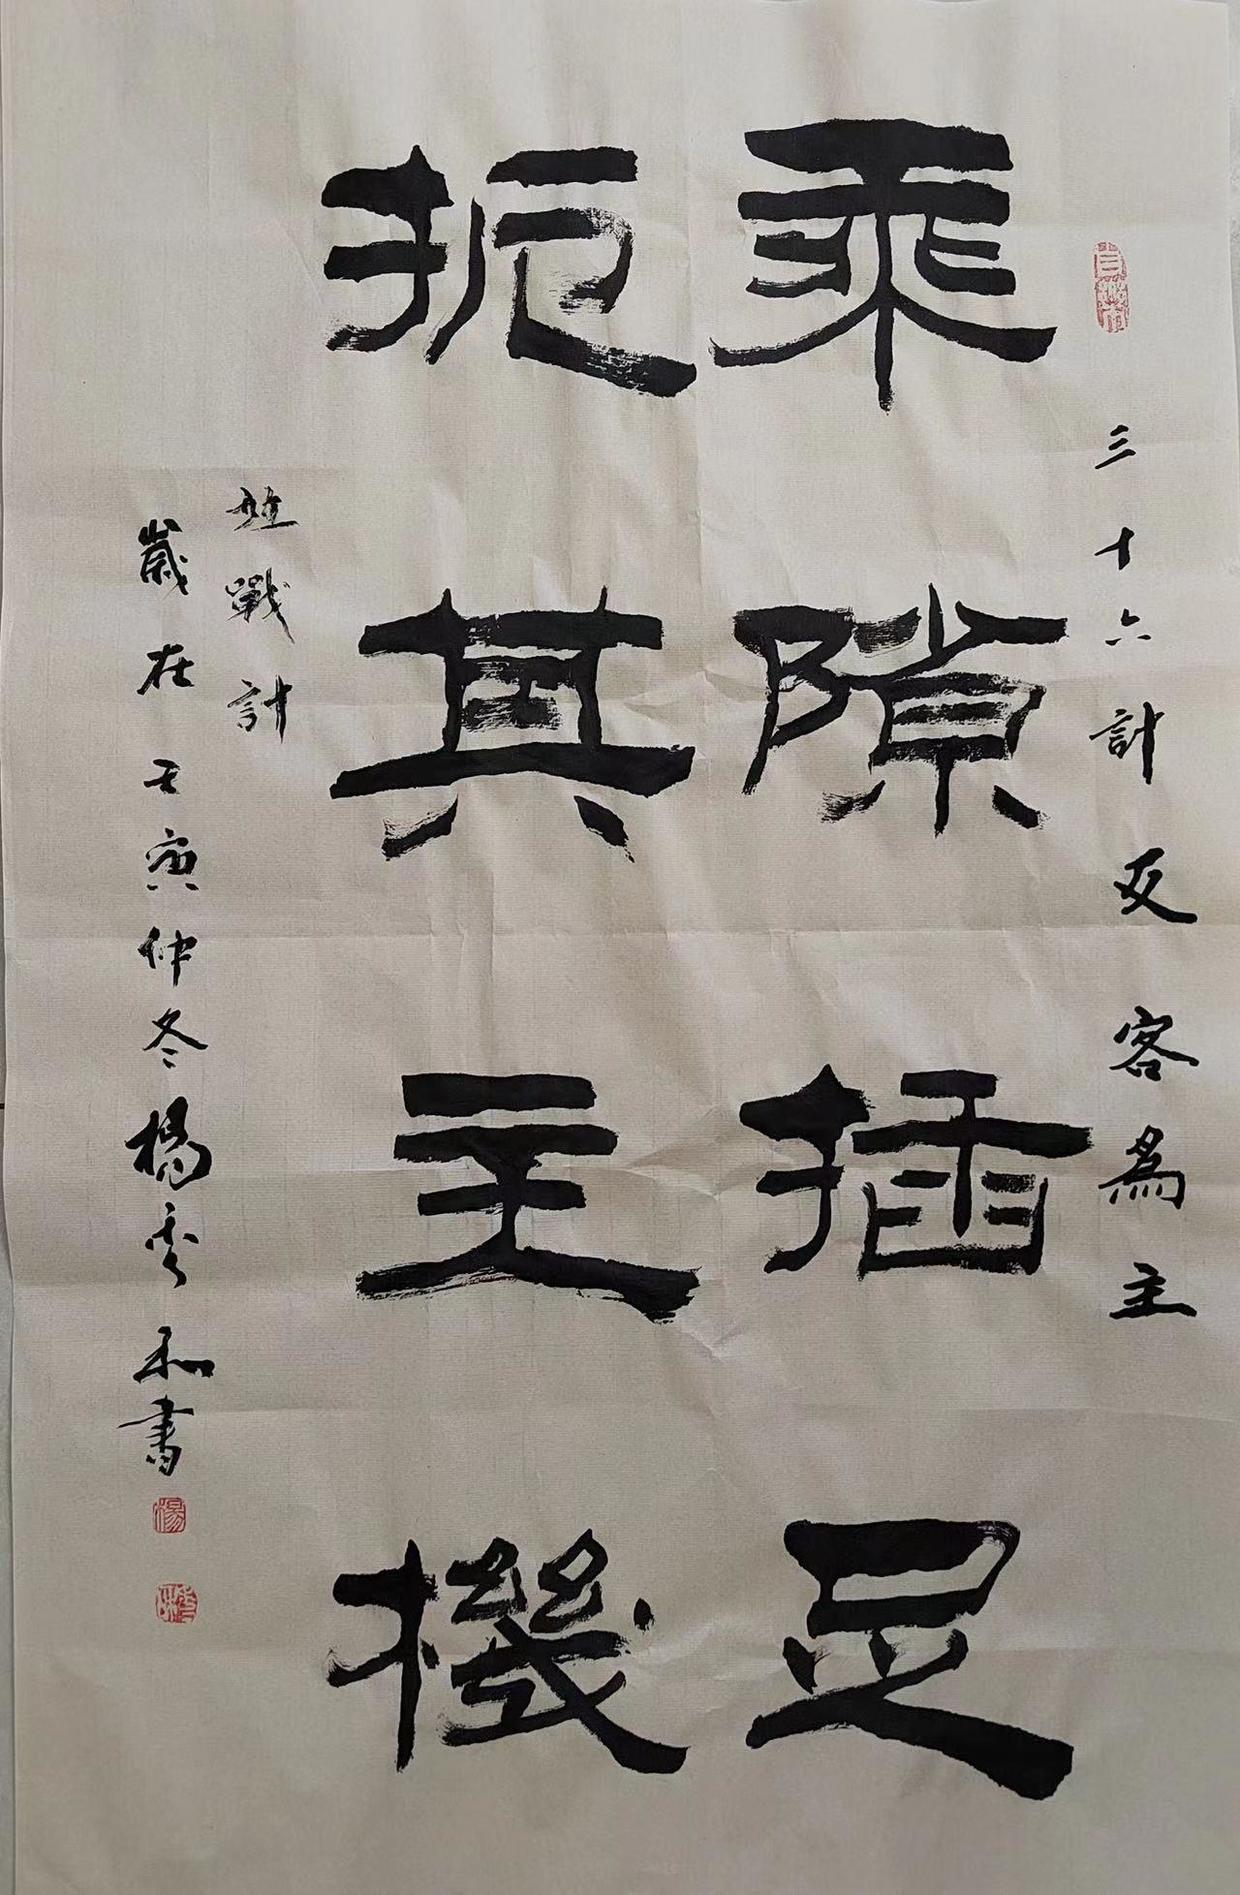 三十六計反客為主
乘隙插足
扼其主机機
並戰計
歲在壬寅仲冬楊秀和書